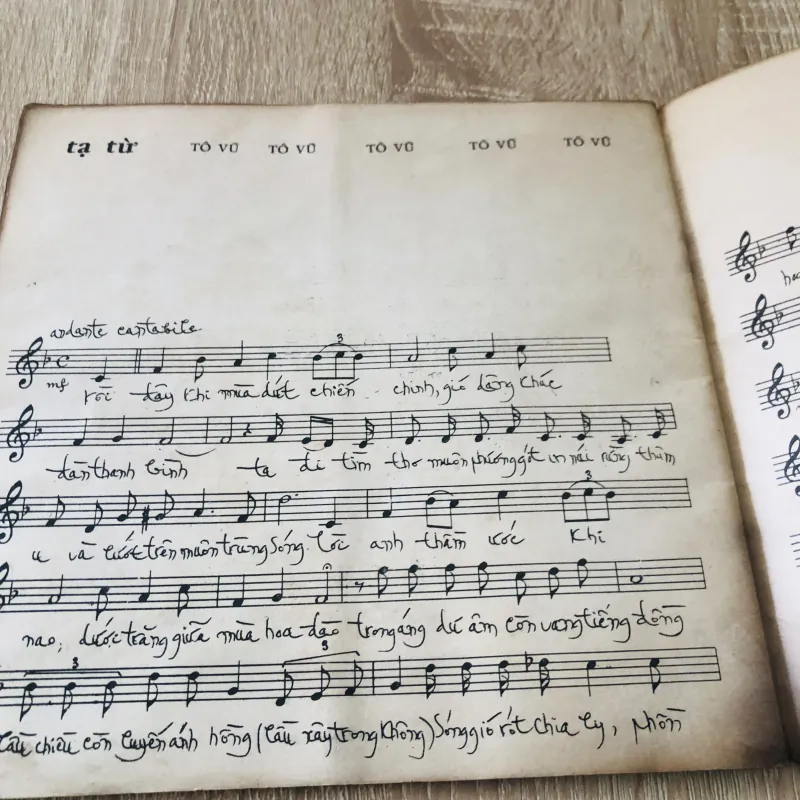 tạ từ TÔ VŨ TÔ VŨ TÔ VŨ TÔ VŨ TÔ VŨ
andante cantabile
3
mf rồi đây khi mùa dứt chiến chinh, gió đông khúc
đàn thanh bình ta đi tìm thơ muôn phương gót in núi rừng thâm
3
u và lướt trên muôn trùng sóng. lời anh thầm ước khi
nao, được trăng giữa mùa hoa đào trong áng dư âm còn vang tiếng đồng
3 3
lầu chiều còn luyến ánh hồng (lầu xây trong không) sóng gió rót chia ly, phồn